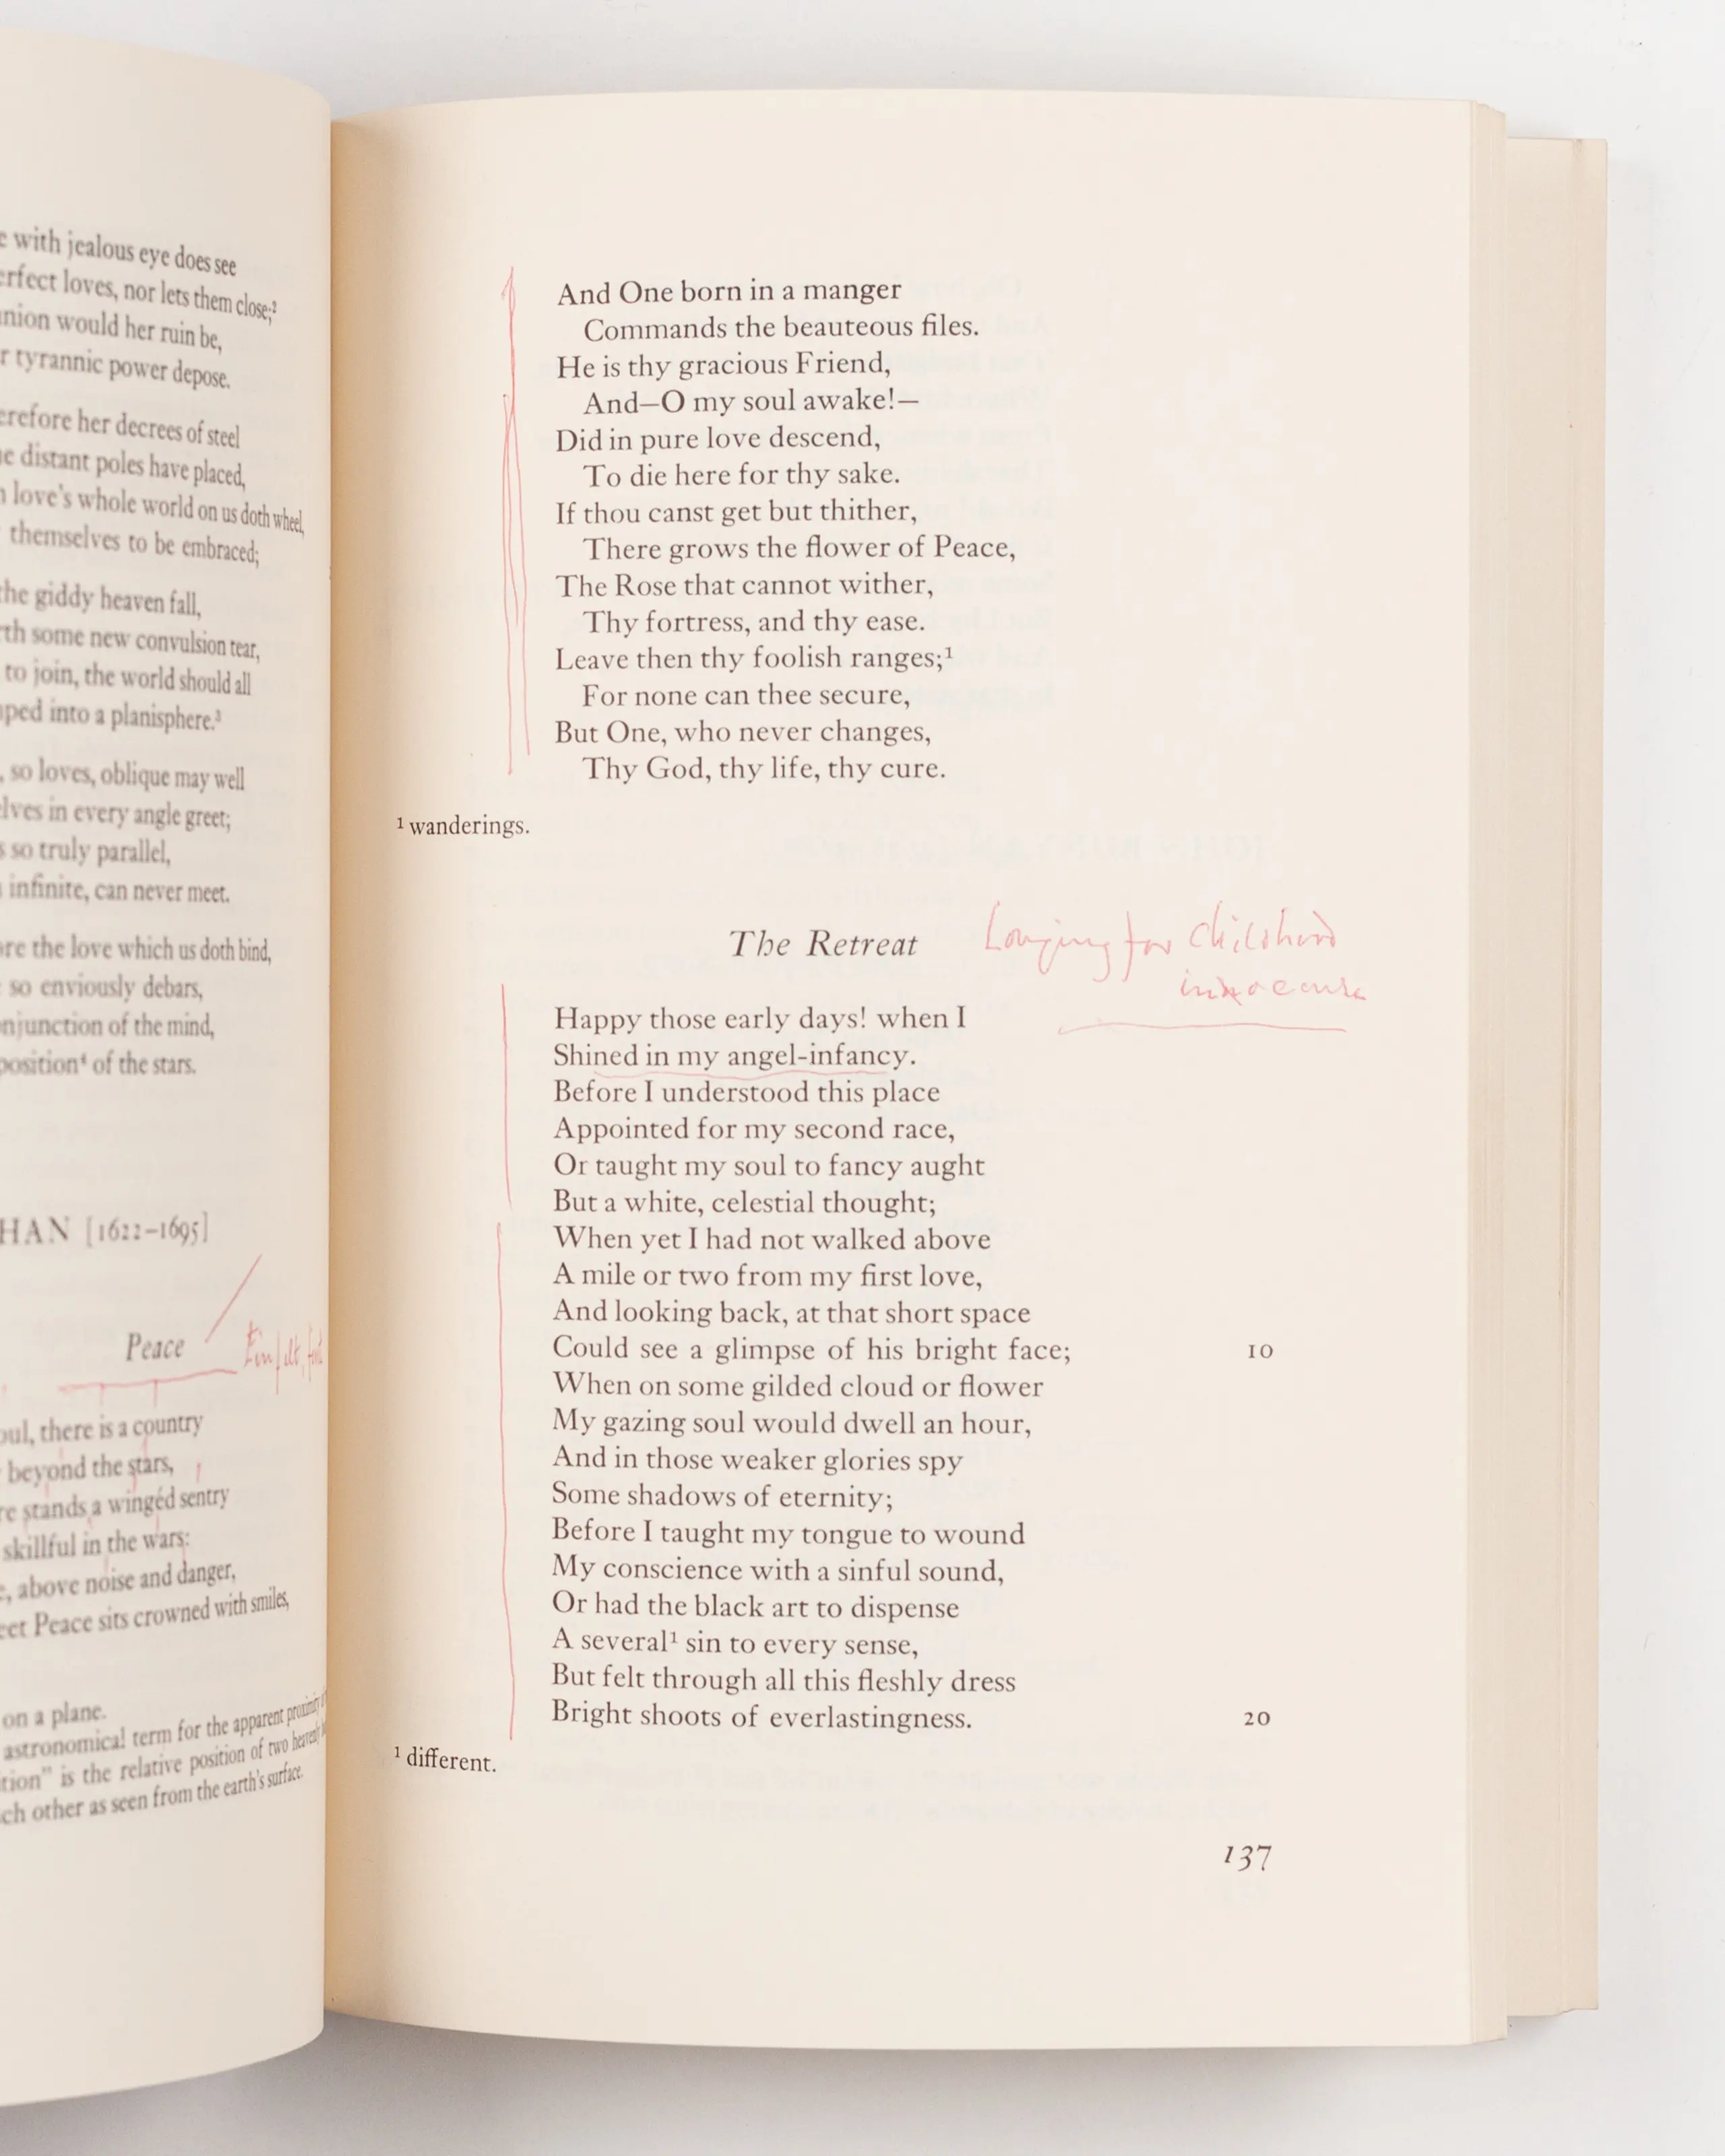 e with jealous eye does see
erfect loves, nor lets them close;²
nion would her ruin be,
r tyrannic power depose.
erefore her decrees of steel
e distant poles have placed,
h love's whole world on us doth wheel,
themselves to be embraced;
the giddy heaven fall,
rth some new convulsion tear,
to join, the world should all
ped into a planisphere.³
, so loves, oblique may well
elves in every angle greet;
s so truly parallel,
infinite, can never meet.
ore the love which us doth bind,
so enviously debars,
njunction of the mind,
position⁴ of the stars.
HAN [1622–1695]
Peace
oul, there is a country
beyond the stars,
re stands a wingéd sentry
skillful in the wars:
e, above noise and danger,
eet Peace sits crowned with smiles,
on a plane.
astronomical term for the apparent proximity
tion" is the relative position of two heavenly
ch other as seen from the earth's surface.
And One born in a manger
Commands the beauteous files.
He is thy gracious Friend,
And—O my soul awake!—
Did in pure love descend,
To die here for thy sake.
If thou canst get but thither,
There grows the flower of Peace,
The Rose that cannot wither,
Thy fortress, and thy ease.
Leave then thy foolish ranges;¹
For none can thee secure,
But One, who never changes,
Thy God, thy life, thy cure.
¹ wanderings.
The Retreat
Longing for childhood
innocence
Happy those early days! when I
Shined in my angel-infancy.
Before I understood this place
Appointed for my second race,
Or taught my soul to fancy aught
But a white, celestial thought;
When yet I had not walked above
A mile or two from my first love,
And looking back, at that short space
Could see a glimpse of his bright face; 10
When on some gilded cloud or flower
My gazing soul would dwell an hour,
And in those weaker glories spy
Some shadows of eternity;
Before I taught my tongue to wound
My conscience with a sinful sound,
Or had the black art to dispense
A several¹ sin to every sense,
But felt through all this fleshly dress
Bright shoots of everlastingness. 20
¹ different.
137